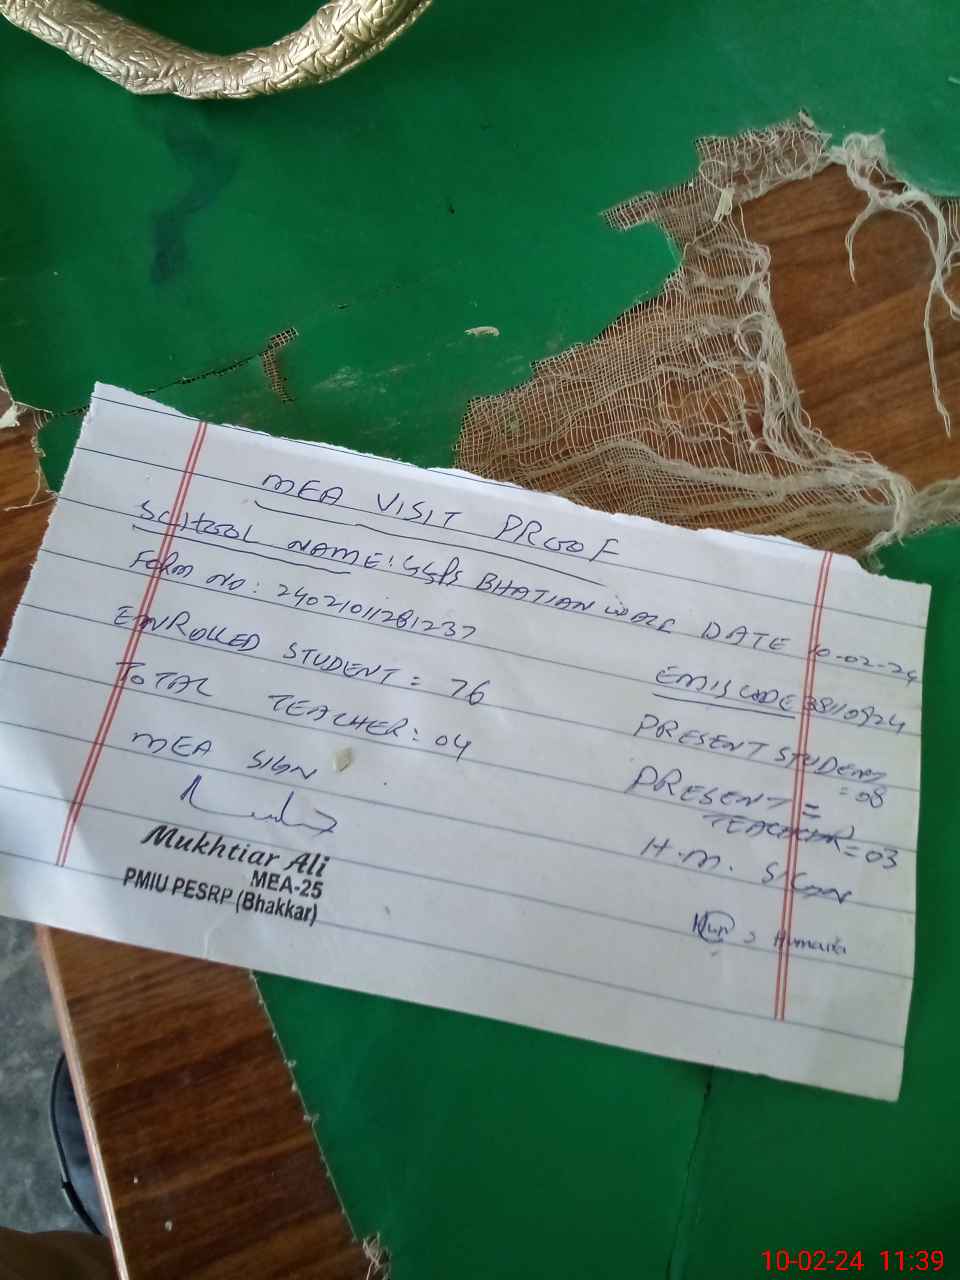 MEA VISIT PROOF
SCHOOL NAME: GGPS BHATIAN WALE DATE 10-02-24
Form no: 24021011281237
EMIS CODE 38110924
ENROLLED STUDENT = 76
PRESENT STUDENT = 08
TOTAL TEACHER: 04
PRESENT TEACHER = 03
MEA SIGN
H.M. SIGN
Mukhtiar Ali
MEA-25
PMIU PESRP (Bhakkar)
Humaira
10-02-24 11:39